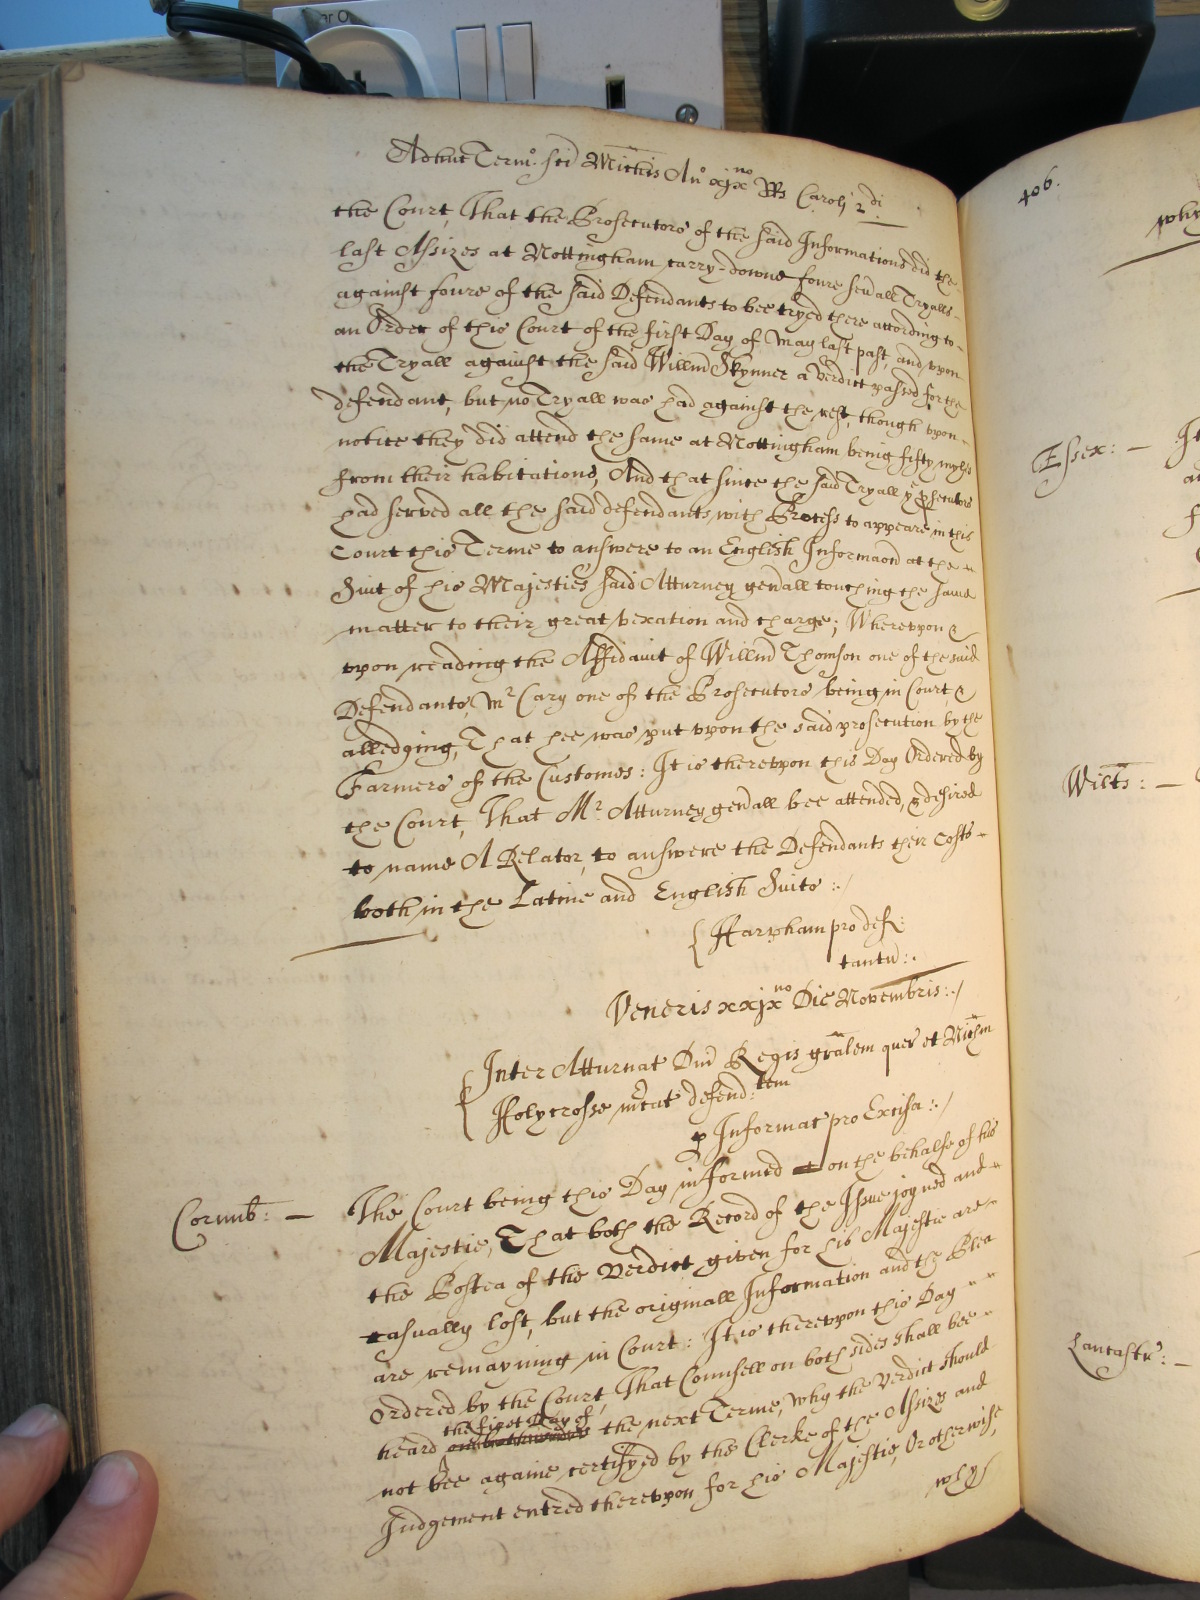 Adhuc Term.o sci Michis An.o xjx no Rs Carolj 2 di
the Court, That the Prosecutors of the said Informations did the
last Assizes at Nottingham carry-downe foure seuall Tryalls
against foure of the said Defendants to bee tryed there according to
an Order of this Court of the first Day of May last past, and vpon
the Tryall against the said Willm Skynner a verdict passed for the
defendant, but no Tryall was had against the rest, though vpon
notice they did attend the same at Nottingham being fifty myles
from their habitations, And that since the said Tryall ye psecutors
had served all the said defendants with Process to appeare in this
Court this Terme to answere to an English Informacon at the
Suit of his Majesties said Atturney genall touching the same
matter to their great vexation and charge; Wherevpon &
vpon reading the Affidauit of Willm Thomson one of the said
Defendants, Mr Cary one of the Prosecutors being in Court &
alledging, That hee was put vpon the said prosecution by the
Farmers of the Customes: It is therevpon this Day Ordered by
the Court, That Mr. Atturney genall bee attended, & desired
to name A Relator, to answere the Defendants their Costs
both in the Latine and English Suits :/
Harpham pro def:
tantu:.
Veneris xxjx no Die Novembris:./
Inter Atturnat Dni Regis gralem quer et Nichm
Holycrosse mcat defend:tem
p Informat pro Excisa:./
Cornub: — The Court being this Day informed on the behalfe of his
Majestie, That both the Record of the Issue joyned and
the Postea of the Verdict given for his Majestie are
casually lost, but the originall Information and the Plea
are remayning in Court: It is therevpon this Day
Ordered by the Court, That Counsell on both sides shall bee
heard the first Day of the next Terme, why the Verdict should
not bee againe certifyed by the Clerke of the Assizes and
Judgement entred therevpon for his Majestie, Or otherwise,
why
406.
why
Essex: —
Wilts: —
Lancastr: —